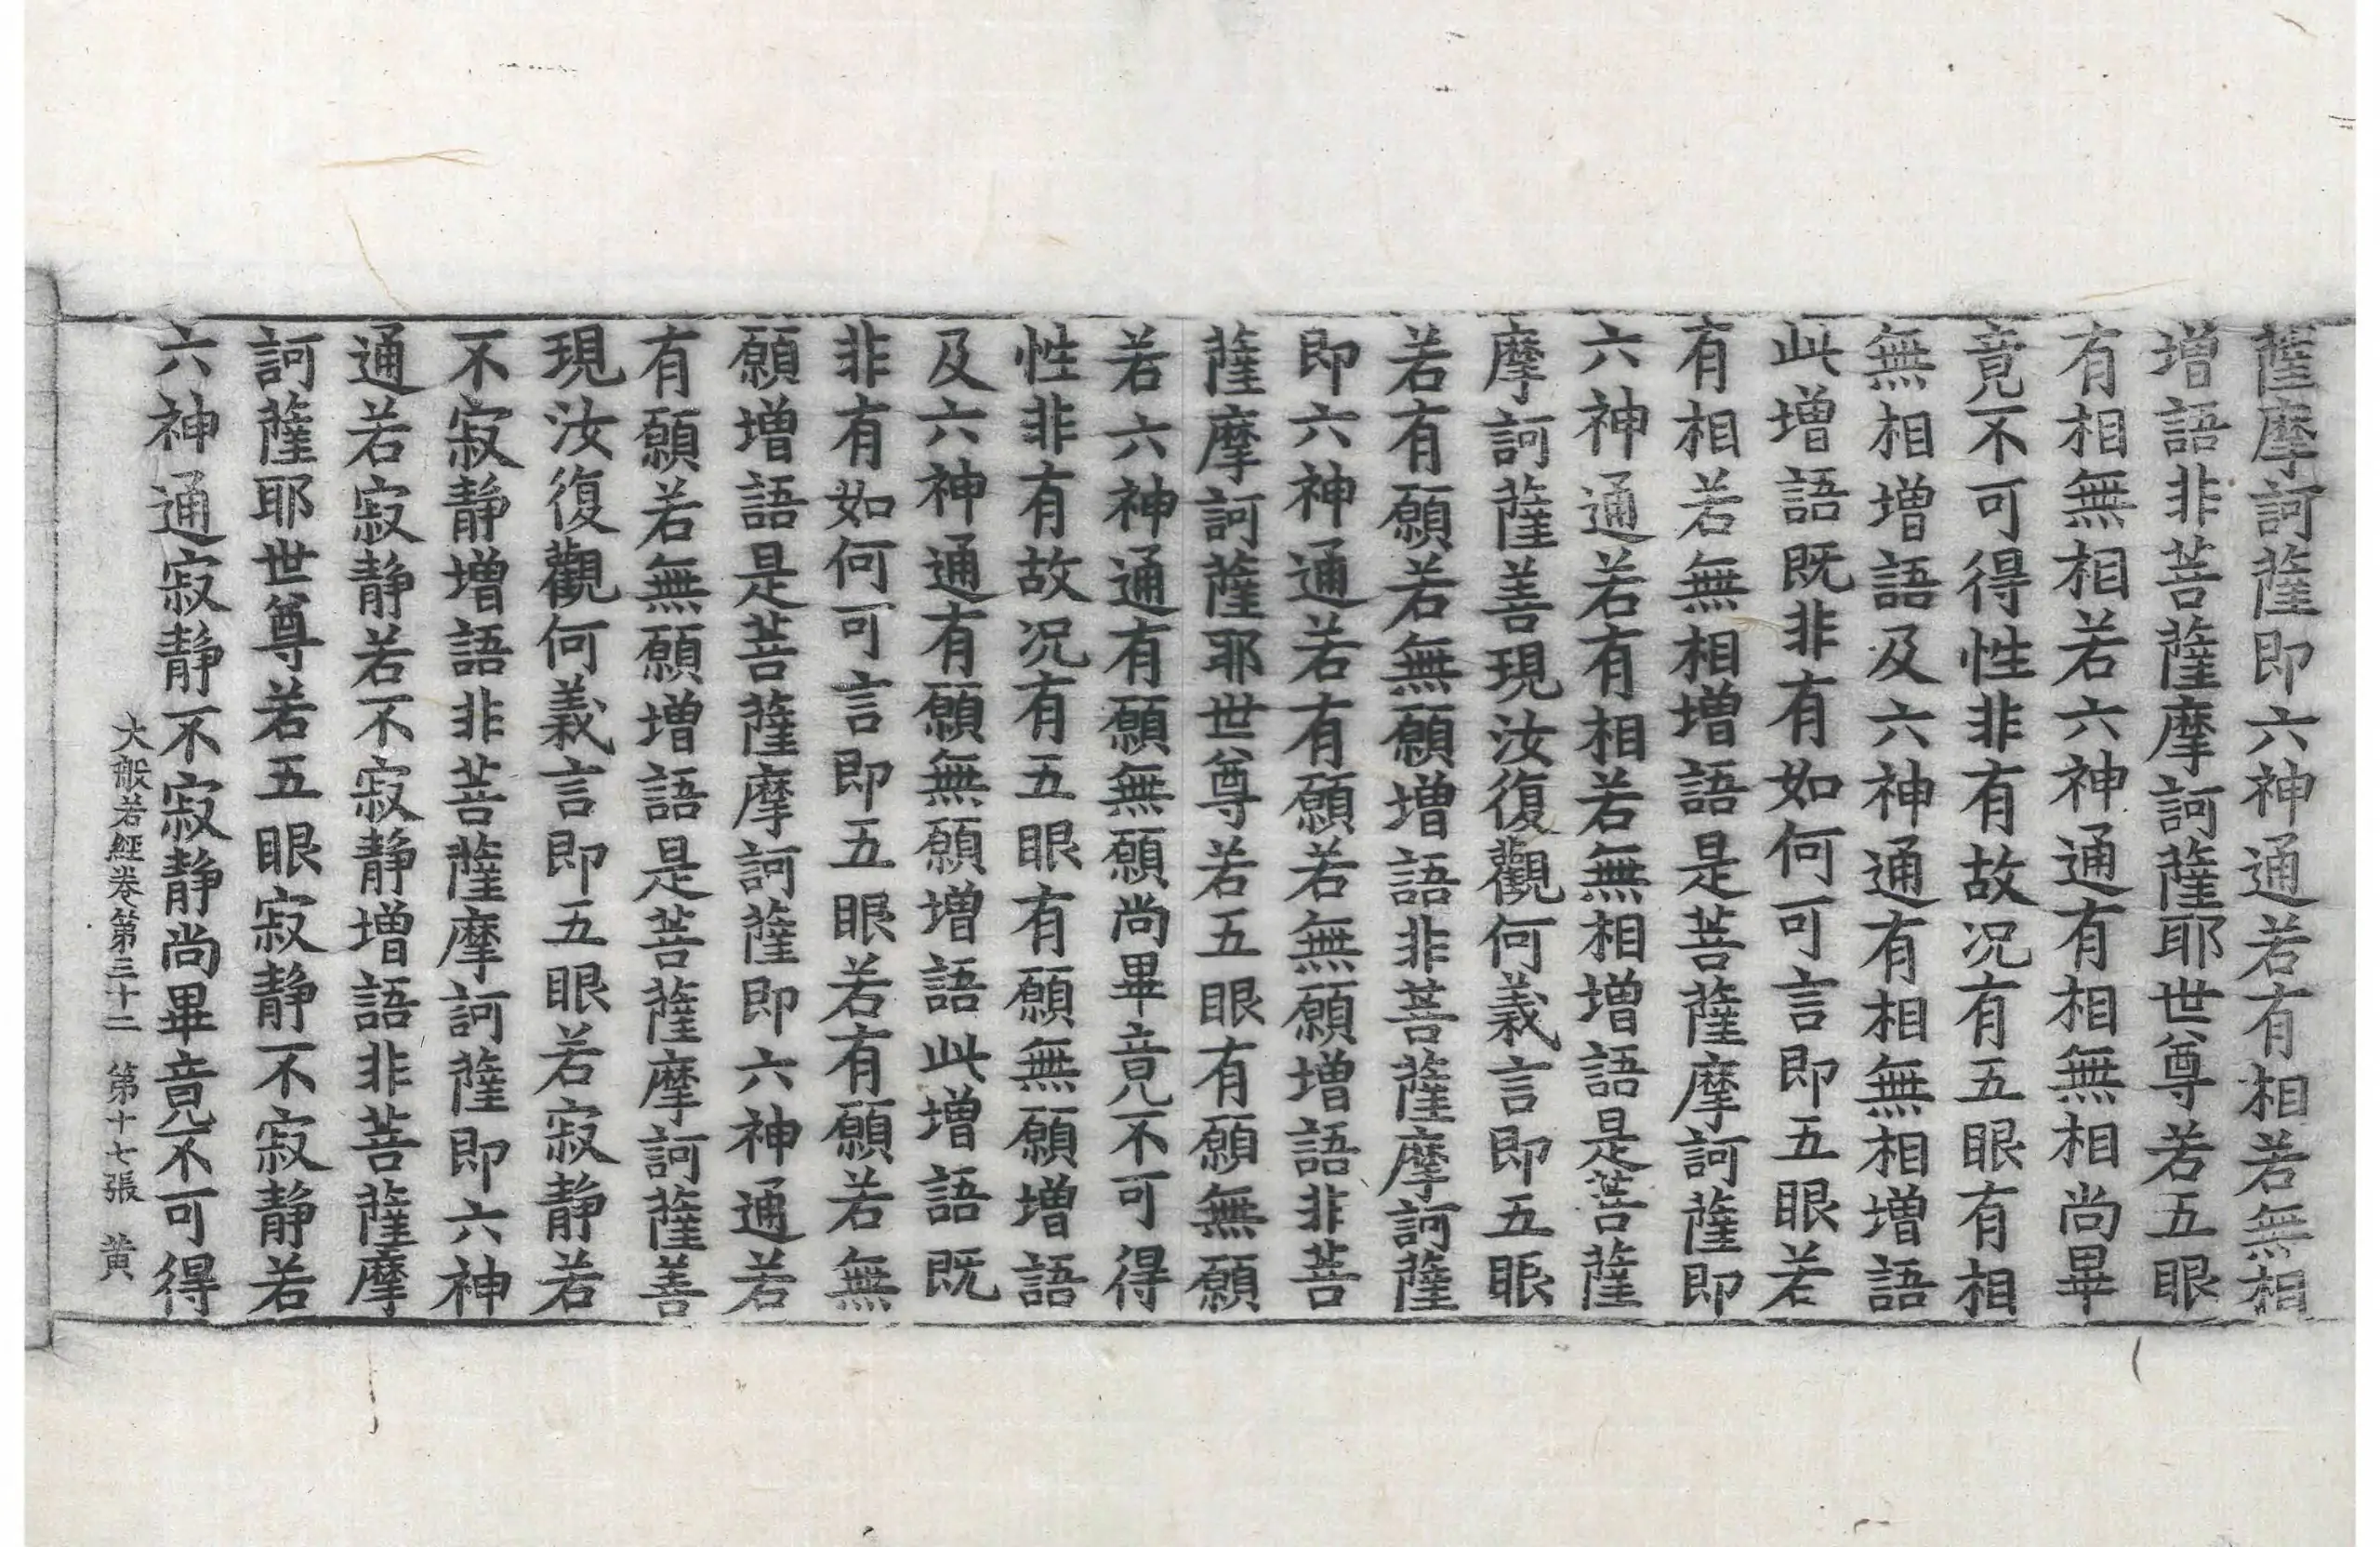 薩摩訶薩即六神通若有相若無相
増語非菩薩摩訶薩耶世尊若五眼
有相無相若六神通有相無相尚畢
竟不可得性非有故况有五眼有相
無相増語及六神通有相無相増語
此増語既非有如何可言即五眼若
有相若無相増語是菩薩摩訶薩即
六神通若有相若無相増語是菩薩
摩訶薩善現汝復觀何義言即五眼
若有願若無願増語非菩薩摩訶薩
即六神通若有願若無願増語非菩
薩摩訶薩耶世尊若五眼有願無願
若六神通有願無願尚畢竟不可得
性非有故况有五眼有願無願増語
及六神通有願無願増語此増語既
非有如何可言即五眼若有願若無
願増語是菩薩摩訶薩即六神通若
有願若無願増語是菩薩摩訶薩善
現汝復觀何義言即五眼若寂静若
不寂静増語非菩薩摩訶薩即六神
通若寂静若不寂静増語非菩薩摩
訶薩耶世尊若五眼寂静不寂静若
六神通寂静不寂静尚畢竟不可得
大般若經卷第三十二 第十七張 黄